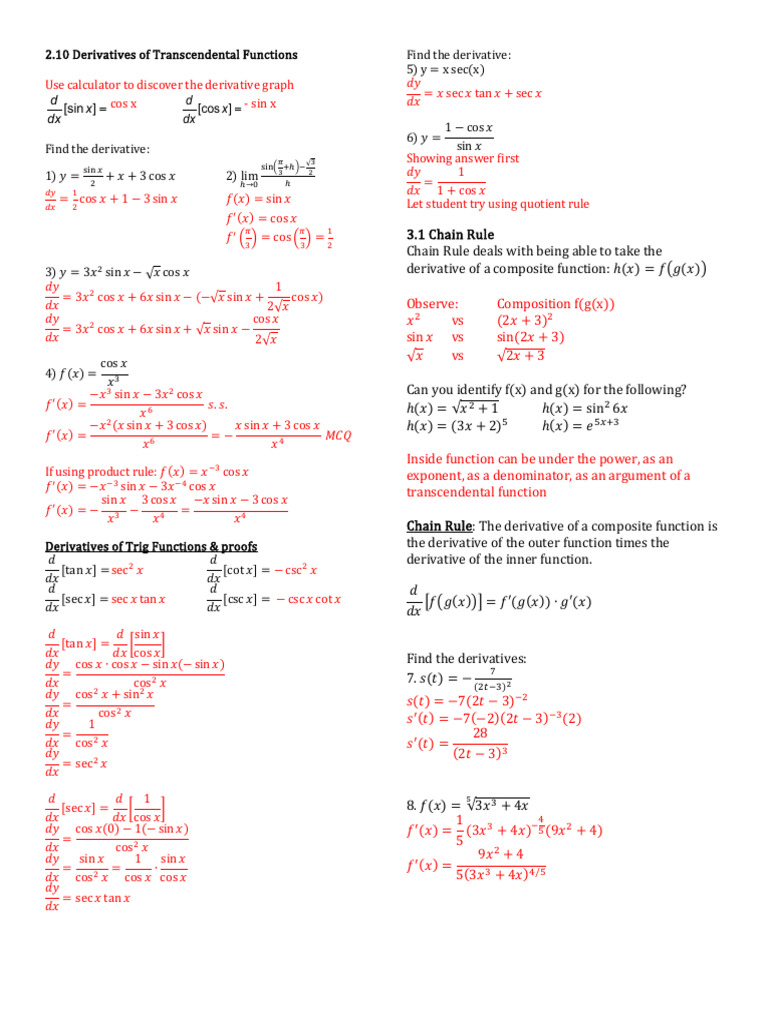 2.10 Derivatives of Transcendental Functions
Use calculator to discover the derivative graph
d/dx [sin x] = cos x    d/dx [cos x] = - sin x
Find the derivative:
1) y = sin x/2 + x + 3 cos x
dy/dx = 1/2 cos x + 1 − 3 sin x
2) lim h→0 (sin(π/3+h)−√3/2)/h
f(x) = sin x
f′(x) = cos x
f′(π/3) = cos(π/3) = 1/2
3) y = 3x² sin x − √x cos x
dy/dx = 3x² cos x + 6x sin x − (−√x sin x + 1/(2√x) cos x)
dy/dx = 3x² cos x + 6x sin x + √x sin x − cos x/(2√x)
4) f(x) = cos x/x³
f′(x) = (−x³ sin x − 3x² cos x)/x⁶ s.s.
f′(x) = −x²(x sin x + 3 cos x)/x⁶ = − (x sin x + 3 cos x)/x⁴ MCQ
If using product rule: f(x) = x⁻³ cos x
f′(x) = −x⁻³ sin x − 3x⁻⁴ cos x
f′(x) = − sin x/x³ − 3 cos x/x⁴ = (−x sin x − 3 cos x)/x⁴
Derivatives of Trig Functions & proofs
d/dx [tan x] = sec² x    d/dx [cot x] = − csc² x
d/dx [sec x] = sec x tan x    d/dx [csc x] = − csc x cot x
d/dx [tan x] = d/dx [sin x/cos x]
dy/dx = (cos x · cos x − sin x(− sin x))/cos² x
dy/dx = (cos² x + sin² x)/cos² x
dy/dx = 1/cos² x
dy/dx = sec² x
d/dx [sec x] = d/dx [1/cos x]
dy/dx = (cos x(0) − 1(− sin x))/cos² x
dy/dx = sin x/cos² x = 1/cos x · sin x/cos x
dy/dx = sec x tan x
Find the derivative:
5) y = x sec(x)
dy/dx = x sec x tan x + sec x
6) y = (1 − cos x)/sin x
Showing answer first
dy/dx = 1/(1 + cos x)
Let student try using quotient rule
3.1 Chain Rule
Chain Rule deals with being able to take the
derivative of a composite function: h(x) = f(g(x))
Observe:    Composition f(g(x))
x²    vs    (2x + 3)²
sin x    vs    sin(2x + 3)
√x    vs    √(2x + 3)
Can you identify f(x) and g(x) for the following?
h(x) = √(x² + 1)    h(x) = sin² 6x
h(x) = (3x + 2)⁵    h(x) = e⁵ˣ⁺³
Inside function can be under the power, as an
exponent, as a denominator, as an argument of a
transcendental function
Chain Rule: The derivative of a composite function is
the derivative of the outer function times the
derivative of the inner function.
d/dx [f(g(x))] = f′(g(x)) · g′(x)
Find the derivatives:
7. s(t) = − 7/(2t−3)²
s(t) = −7(2t − 3)⁻²
s′(t) = −7(−2)(2t − 3)⁻³(2)
s′(t) = 28/(2t − 3)³
8. f(x) = ⁵√(3x³ + 4x)
f′(x) = 1/5 (3x³ + 4x)^(−4/5) (9x² + 4)
f′(x) = (9x² + 4)/(5(3x³ + 4x)^(4/5))